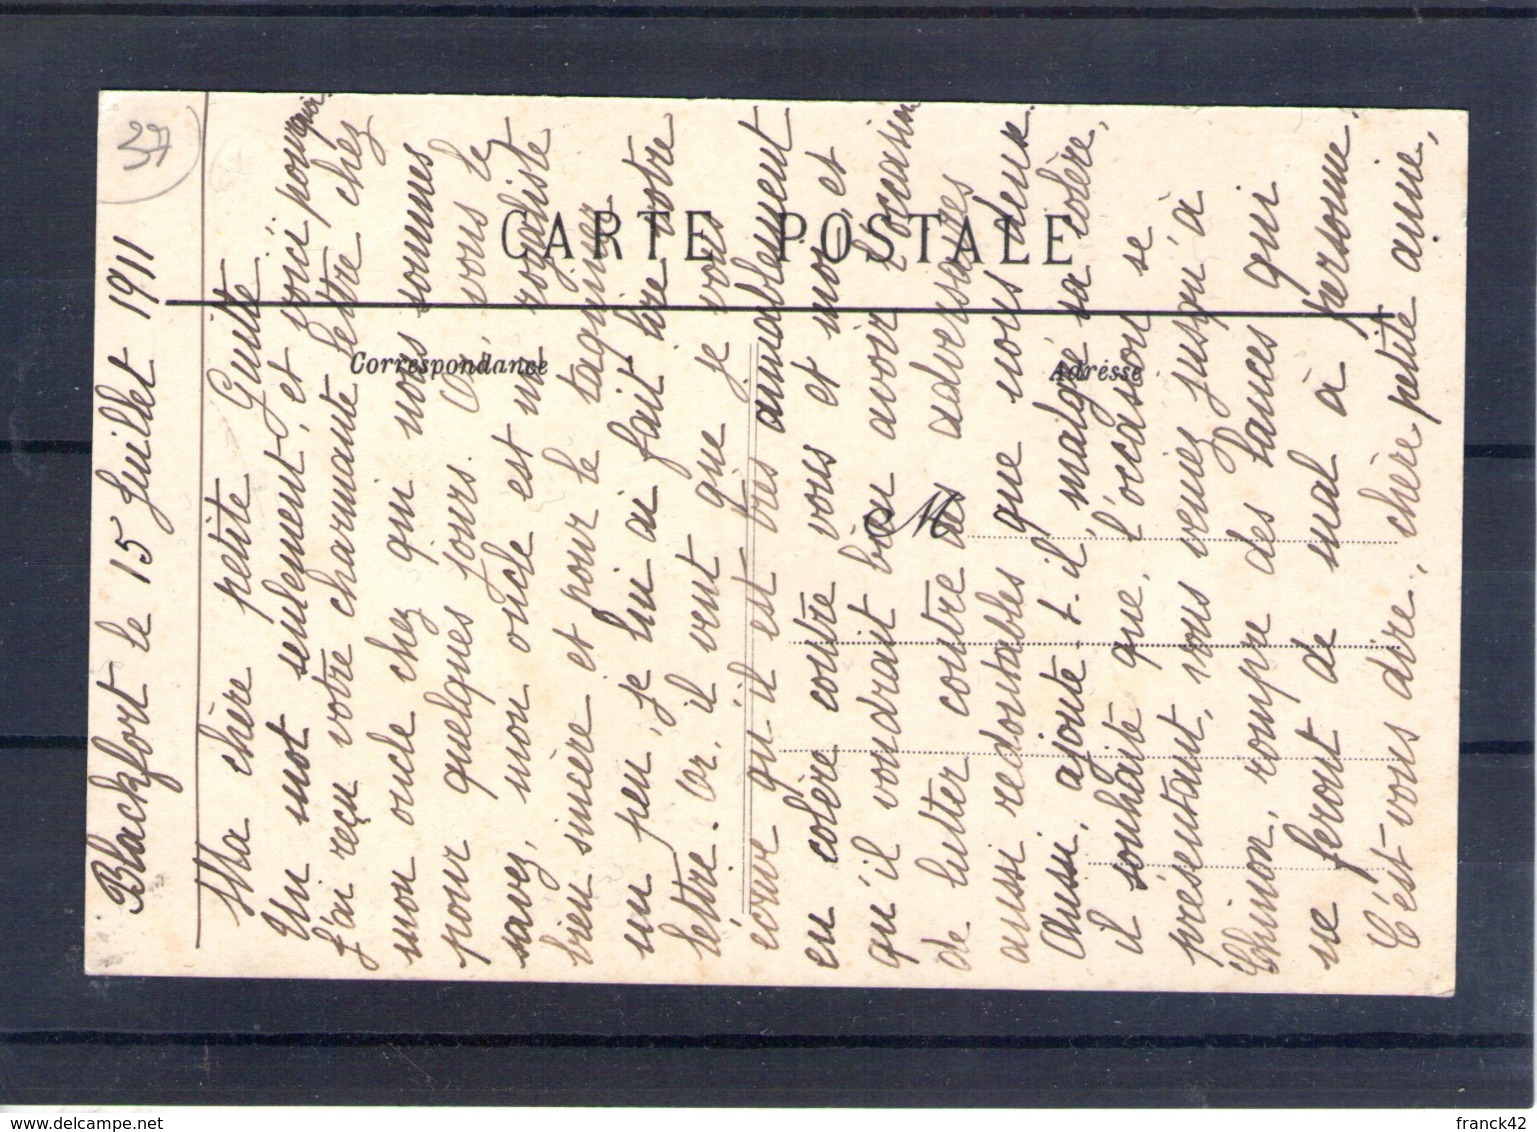 37
Blackfort le 15 Juillet 1911
Ma chère petite Guite
Un mot seulement, et voici pourquoi.
J'ai reçu votre charmante lettre chez
mon oncle chez qui nous sommes
pour quelques jours. Or, vous le
savez, mon oncle est un royaliste
bien sincère et pour le taquiner
un peu, je lui ai fait lire votre
lettre. Or, il veut que je vous
écrive qu'il est très aimablement
en colère contre vous et moi et
qu'il voudrait bien avoir l'occasion
de lutter contre des adversaires
aussi redoutables que nous deux.
Aussi, ajoute-t-il malgré sa colère,
il souhaite que, l'occasion se
présentant, vous veniez jusqu'à
Chinon, rompre des lances qui
ne feront de mal à personne.
C'est vous dire, chère petite amie,
CARTE POSTALE
Correspondance
Adresse
M
www.delcampe.net
franck42